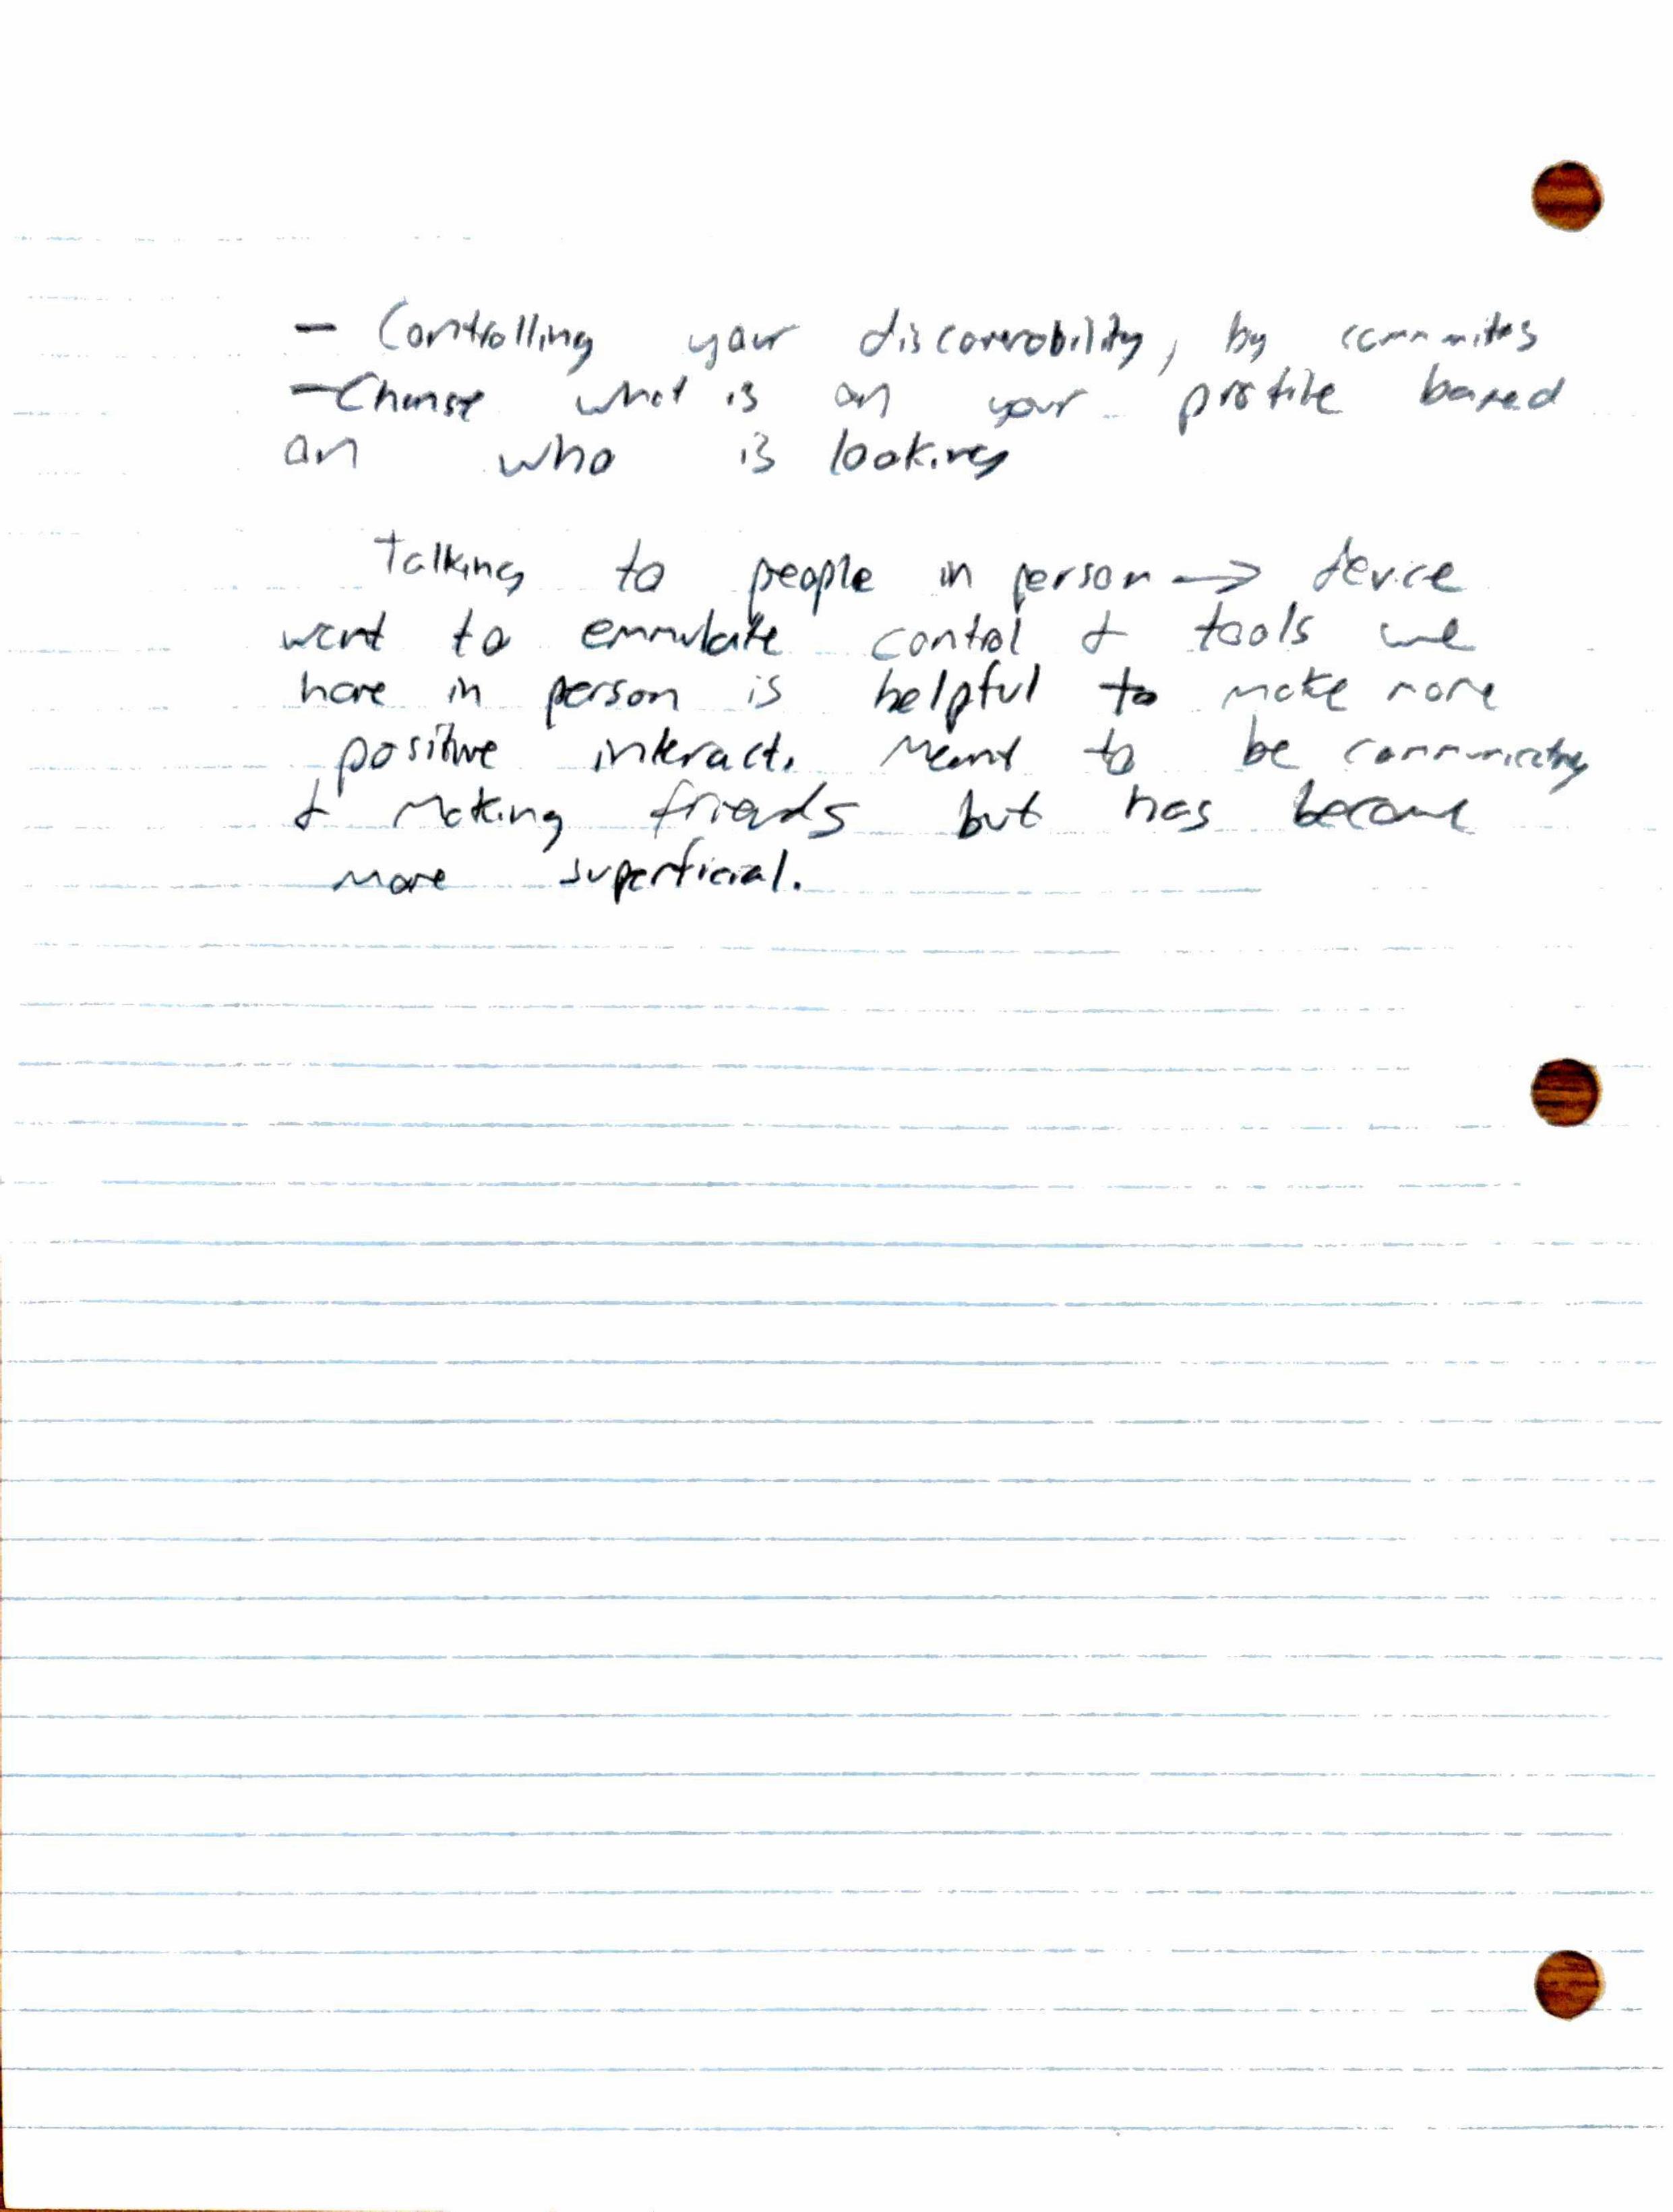 - Controlling your discoverability, by
- Change what is on your profile based
on who is looking
Talking to people in person → device
want to emmulate control & tools we
have in person is helpful to make more
positive interact. Meant to be communicating
& making friends but has become
more superficial.